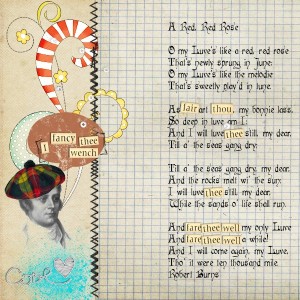 A Red, Red Rose
O my Luve's like a red, red rose
That's newly sprung in June:
O my Luve's like the melodie
That's sweetly play'd in tune.
As fair art thou, my bonnie lass,
So deep in luve am I:
And I will luve thee still, my dear,
Till a' the seas gang dry:
Till a' the seas gang dry, my dear,
And the rocks melt wi' the sun:
I will luve thee still, my dear,
While the sands o' life shall run.
And fare thee well my only Luve
And fare thee well a while!
And I will come again, my Luve,
Tho' it were ten thousand mile.
Robert Burns
I fancy thee
wench